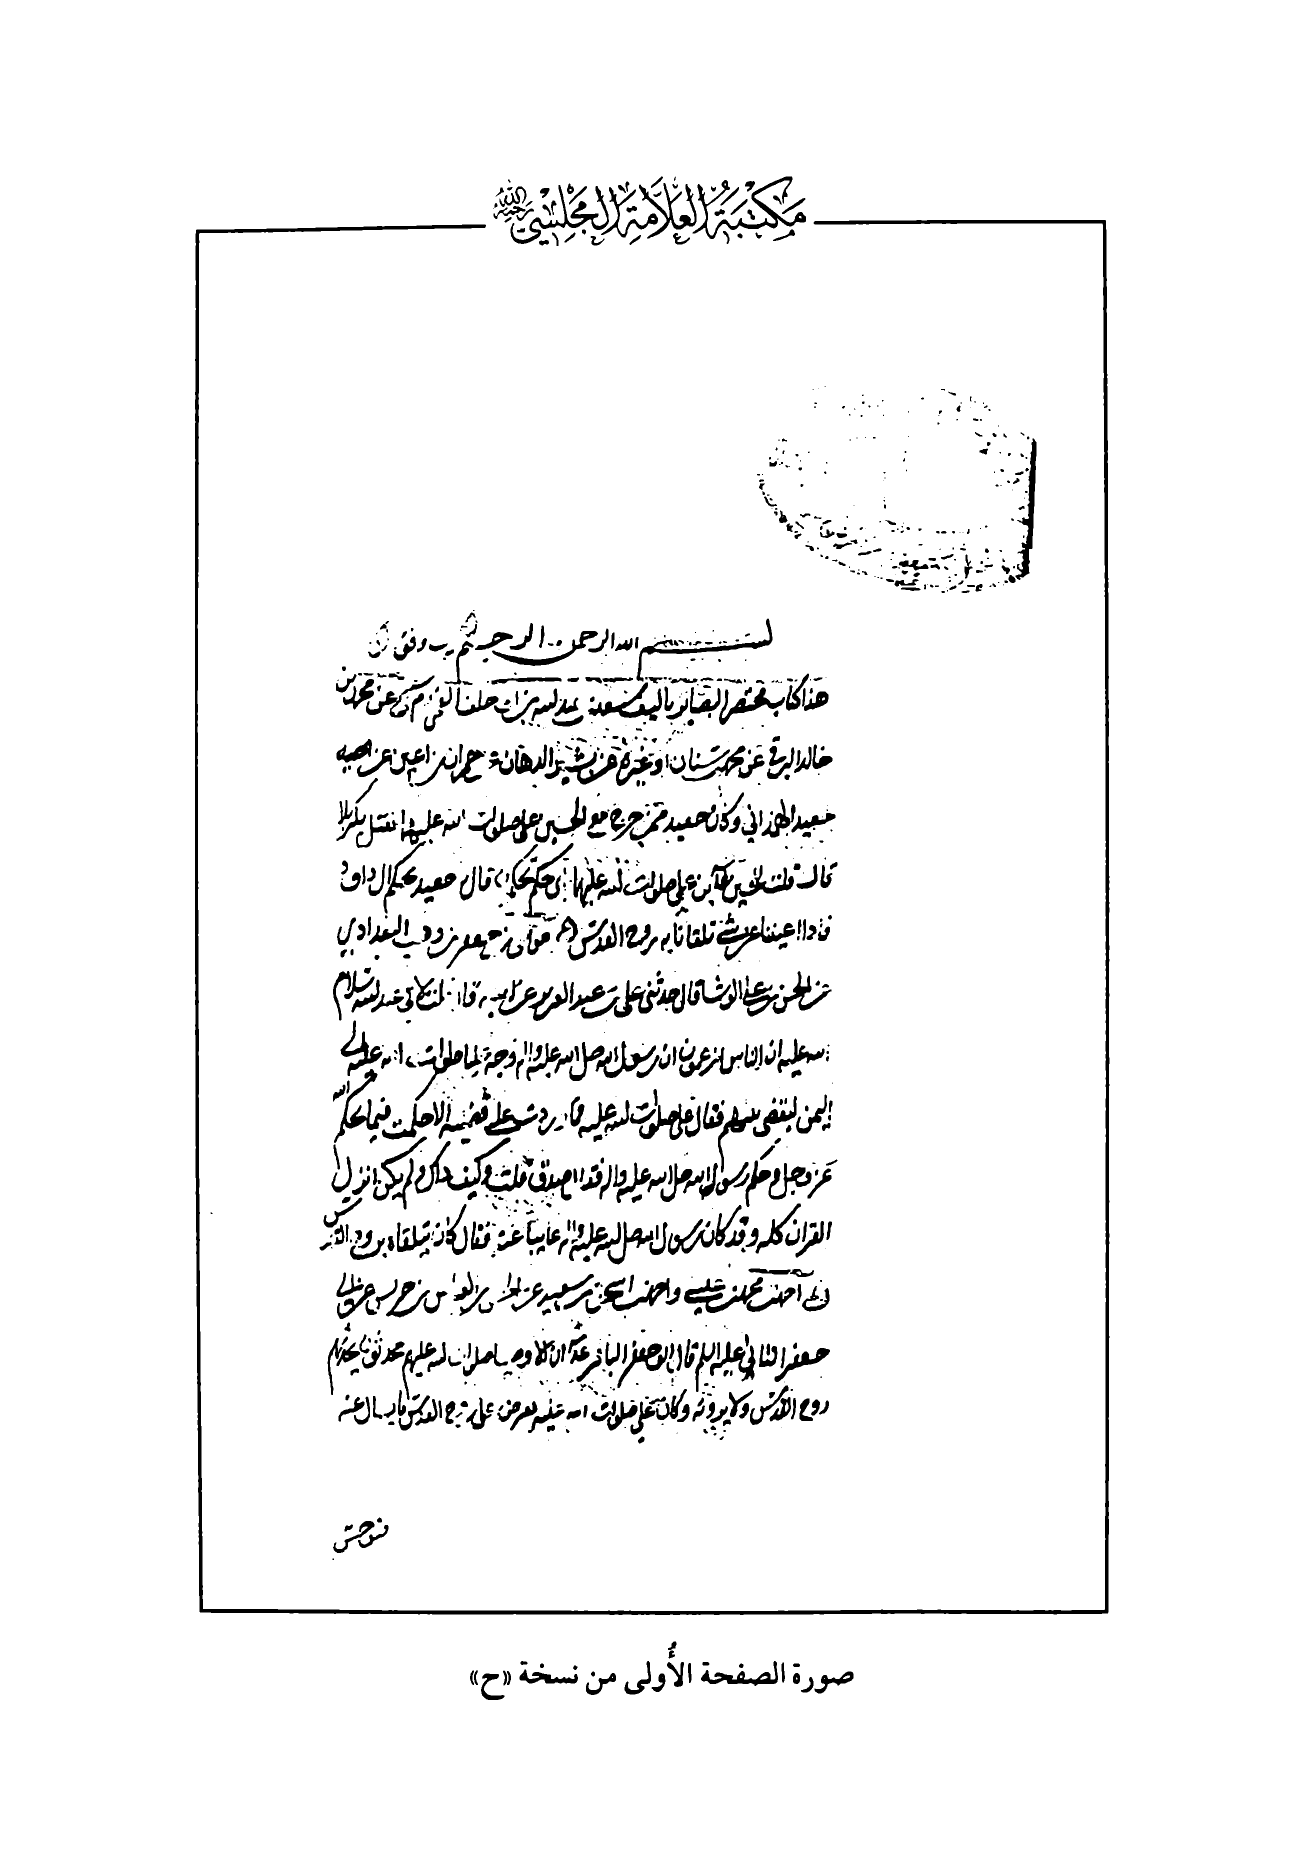 مكتبة العلامة المجلسي رحمه الله
بسم الله الرحمن الرحيم رب وفق
هذا كتاب مختصر البصاير تاليف سعد بن عبد الله بن ابي خلف القمي عن محمد بن
خالد البرقي عن محمد بن سنان او غيره عن بشير الدهان عن حمران بن اعين عن
جعيد الهمداني وكان جعيد ممن خرج مع الحسين بن علي صلوات الله عليهما فقتل بكربلا
قال قلت للحسين بن علي صلوات الله عليهما باي حكم تحكمون قال جعيد بحكم ال داود
فاذا اعيينا عن شي تلقانا به روح القدس جعفر بن وهب البغدادي
عن الحسن بن علي الوشا قال حدثني علي بن عبد العزيز عن ابيه قال قلت لابي عبد الله سلام
الله عليه ان الناس يزعمون ان رسول الله صلى الله عليه واله وجه عليا صلوات الله عليه الى
اليمن ليقضي بينهم فقال علي صلوات الله عليه فما وردت علي قضية الا حكمت فيها بحكم الله
عز وجل وحكم رسول الله صلى الله عليه واله فقال صدقوا قلت وكيف ذاك ولم يكن انزل
القران كله وقد كان رسول الله صلى الله عليه واله غايبا عنه فقال كان يتلقاه به روح القدس
احمد بن محمد بن عيسى واحمد بن اسحق بن سعيد عن الحسن بن العباس بن حريش عن ابي
جعفر الثاني عليه السلام قال قال ابو جعفر الباقر ان الاوصيا صلوات الله عليهم محدثون يحدثهم
روح القدس ولا يرونه وكان علي صلوات الله عليه يعرض على روح القدس ما يسال عنه
صورة الصفحة الأُولى من نسخة «ح»